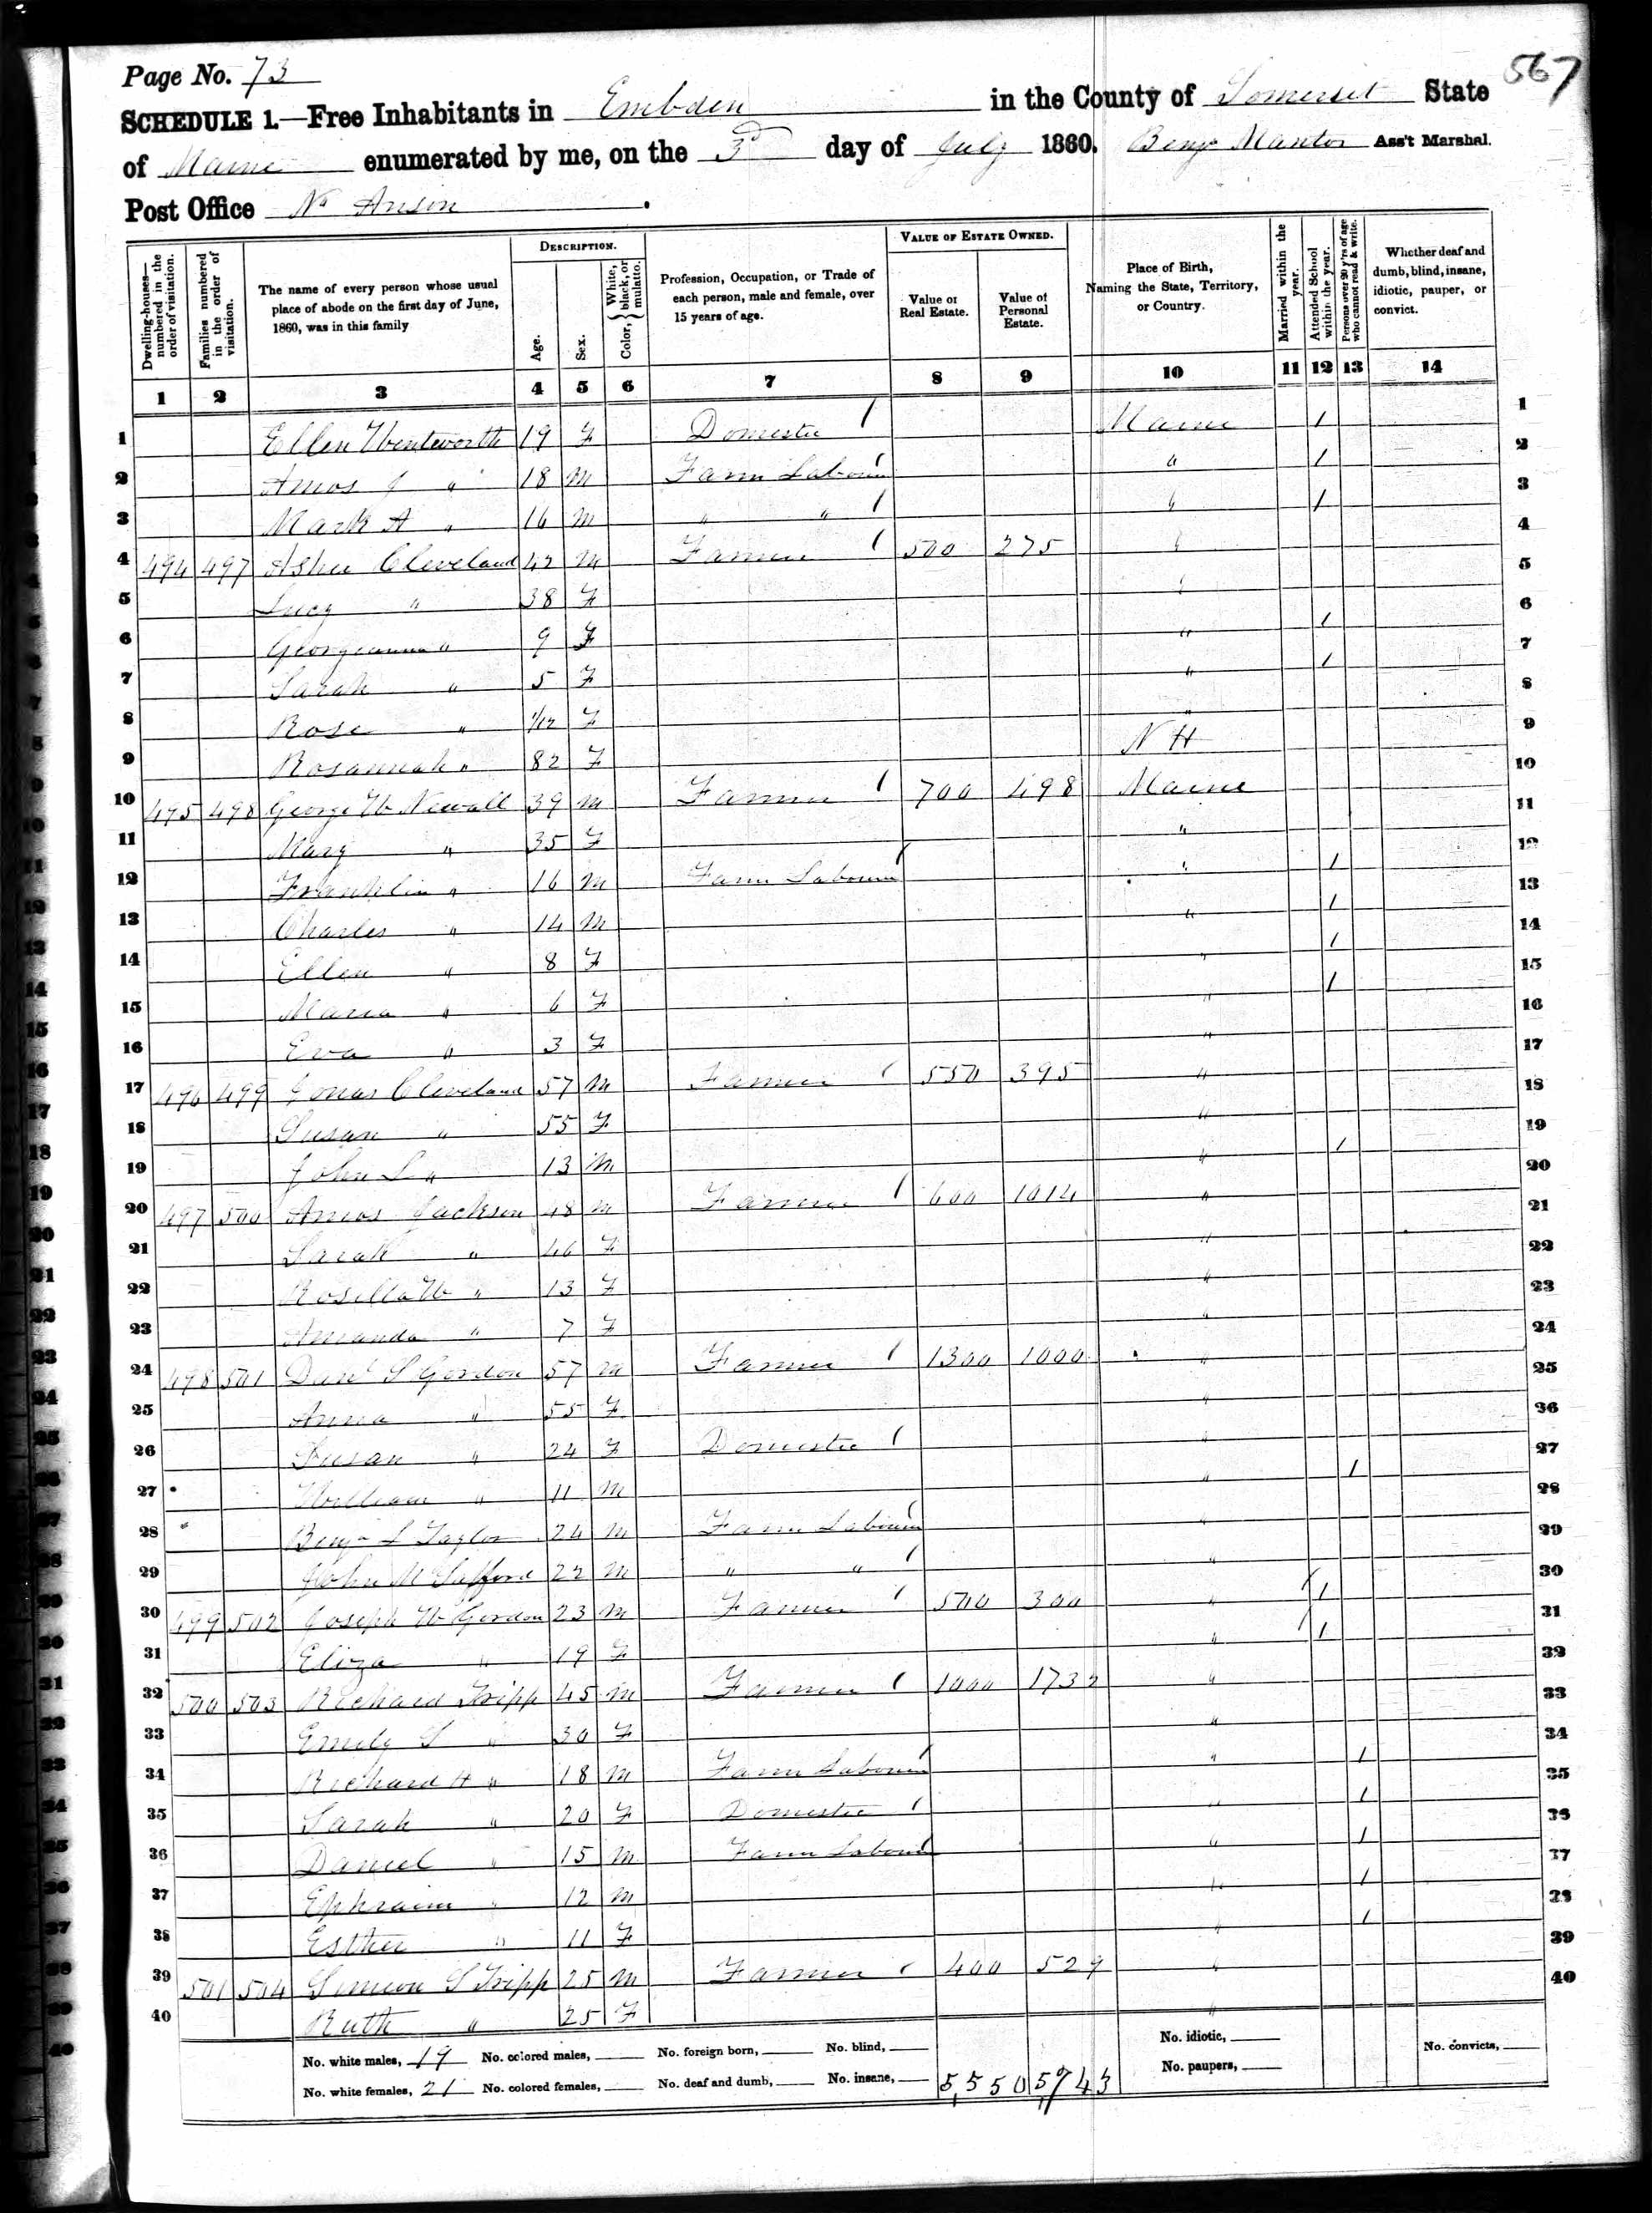 Page No. 73
567
SCHEDULE 1.—Free Inhabitants in Embden in the County of Somerset State
of Maine enumerated by me, on the 3d day of July 1860. Benja Mantor Ass't Marshal.
Post Office No Anson.
DESCRIPTION. VALUE OF ESTATE OWNED.
Dwelling-houses—numbered in the order of visitation. Families numbered in the order of visitation. The name of every person whose usual place of abode on the first day of June, 1860, was in this family Age. Sex. Color, White, black, or mulatto. Profession, Occupation, or Trade of each person, male and female, over 15 years of age. Value of Real Estate. Value of Personal Estate. Place of Birth, Naming the State, Territory, or Country. Married within the year. Attended School within the year. Persons over 20 y'rs of age who cannot read & write. Whether deaf and dumb, blind, insane, idiotic, pauper, or convict.
1 2 3 4 5 6 7 8 9 10 11 12 13 14
1 Ellen Wentworth 19 F Domestic / Maine / 1
2 Amos J " 18 M Farm Labourer / " / 2
3 Mark A " 16 M " " / " / 3
4 494 497 Asher Cleveland 42 M Farmer / 500 275 " 4
5 Lucy " 38 F " 5
6 Georgeanna " 9 F " / 6
7 Sarah " 5 F " / 7
8 Rose " 1/12 F " 8
9 Rosannah " 82 F N H 9
10 495 498 George W Newall 39 M Farmer / 700 498 Maine 10
11 Mary " 35 F " 11
12 Franklin " 16 M Farm Labourer / " / 12
13 Charles " 14 M " / 13
14 Ellen " 8 F " / 14
15 Maria " 6 F " / 15
16 Eva " 3 F " 16
17 496 499 Jonas Cleveland 57 M Farmer / 550 395 " 17
18 Susan " 55 F " 18
19 John S " 13 M " / 19
20 497 500 Amos Jackson 48 M Farmer / 600 1014 " 20
21 Sarah " 46 F " 21
22 Rosilla W " 13 F " 22
23 Amanda " 7 F " 23
24 498 501 Danl S Gordon 57 M Farmer / 1300 1000 " 24
25 Anna " 55 F " 25
26 Susan " 24 F Domestic / " 26
27 William " 11 M " / 27
28 Benja L Taylor 24 M Farm Labourer / " 28
29 John M Safford 22 M " " / " 29
30 499 502 Joseph W Gordon 23 M Farmer / 500 300 " / / 30
31 Eliza " 19 F " / / 31
32 500 503 Richard Tripp 45 M Farmer / 1000 1732 " 32
33 Emily S " 30 F " 33
34 Richard H " 18 M Farm Labourer / " / 34
35 Sarah " 20 F Domestic / " / 35
36 Daniel " 15 M Farm Labourer / " / 36
37 Ephraim " 12 M " / 37
38 Esther " 11 F " / 38
39 501 504 Simeon S Tripp 25 M Farmer / 400 529 " 39
40 Ruth " 25 F " 40
No. white males, 19 No. colored males, No. foreign born, No. blind, No. idiotic, No. convicts,
No. white females, 21 No. colored females, No. deaf and dumb, No. insane, 5,550 5,743 No. paupers,